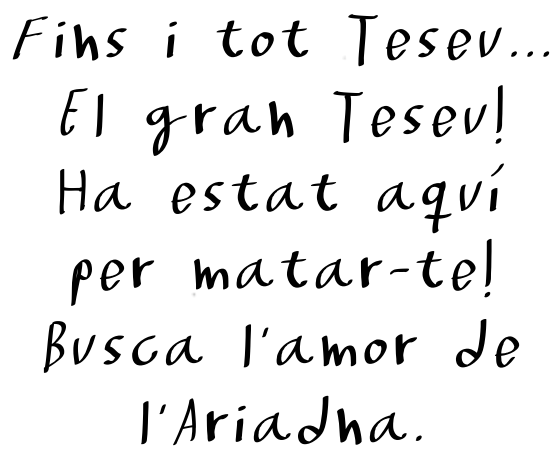 Fins i tot Teseu...
El gran Teseu!
Ha estat aquí
per matar-te!
Busca l'amor de
l'Ariadna.